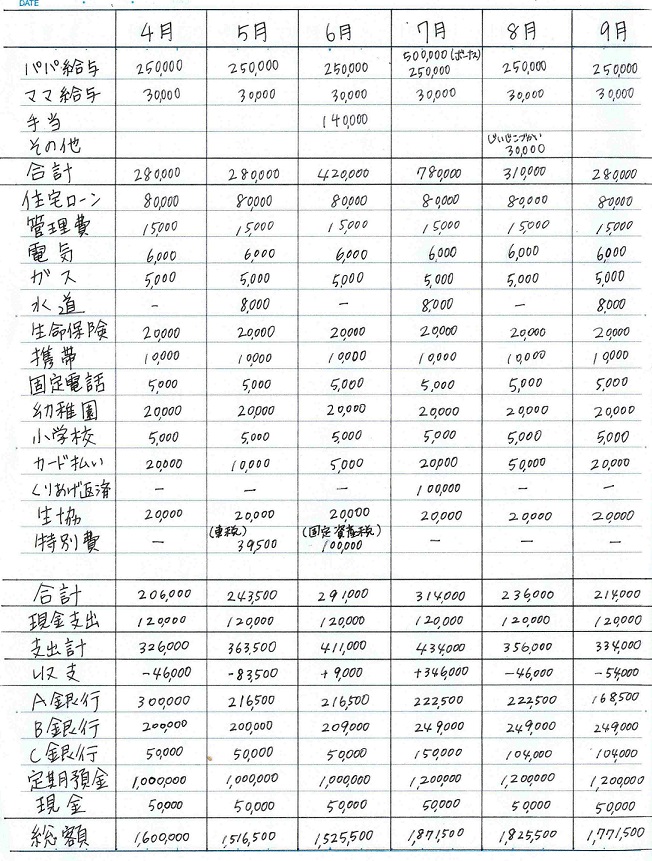 DATE
4月 5月 6月 7月 8月 9月
500,000(ボーナス)
パパ給与 250,000 250,000 250,000 250,000 250,000 250,000
ママ給与 30,000 30,000 30,000 30,000 30,000 30,000
手当 140,000
じいじこづかい
その他 30,000
合計 280,000 280,000 420,000 780,000 310,000 280,000
住宅ローン 80,000 80,000 80,000 80,000 80,000 80,000
管理費 15,000 15,000 15,000 15,000 15,000 15,000
電気 6,000 6,000 6,000 6,000 6,000 6,000
ガス 5,000 5,000 5,000 5,000 5,000 5,000
水道 － 8,000 － 8,000 － 8,000
生命保険 20,000 20,000 20,000 20,000 20,000 20,000
携帯 10,000 10,000 10,000 10,000 10,000 10,000
固定電話 5,000 5,000 5,000 5,000 5,000 5,000
幼稚園 20,000 20,000 20,000 20,000 20,000 20,000
小学校 5,000 5,000 5,000 5,000 5,000 5,000
カード払い 20,000 10,000 5,000 20,000 50,000 20,000
くりあげ返済 － － － 100,000 － －
生協 20,000 20,000 20,000 20,000 20,000 20,000
(車税) (固定資産税)
特別費 － 39,500 100,000 － － －
合計 206,000 243,500 291,000 314,000 236,000 214,000
現金支出 120,000 120,000 120,000 120,000 120,000 120,000
支出計 326,000 363,500 411,000 434,000 356,000 334,000
収支 -46,000 -83,500 +9,000 +346,000 -46,000 -54,000
A銀行 300,000 216,500 216,500 222,500 222,500 168,500
B銀行 200,000 200,000 209,000 249,000 249,000 249,000
C銀行 50,000 50,000 50,000 150,000 104,000 104,000
定期預金 1,000,000 1,000,000 1,000,000 1,200,000 1,200,000 1,200,000
現金 50,000 50,000 50,000 50,000 50,000 50,000
総額 1,600,000 1,516,500 1,525,500 1,871,500 1,825,500 1,771,500